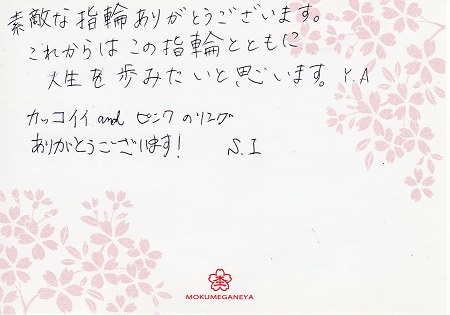 素敵な指輪ありがとうございます。
これからはこの指輪とともに
人生を歩みたいと思います。Y.A
カッコイイ and ピンクのリング
ありがとうございます! S.I
MOKUMEGANEYA